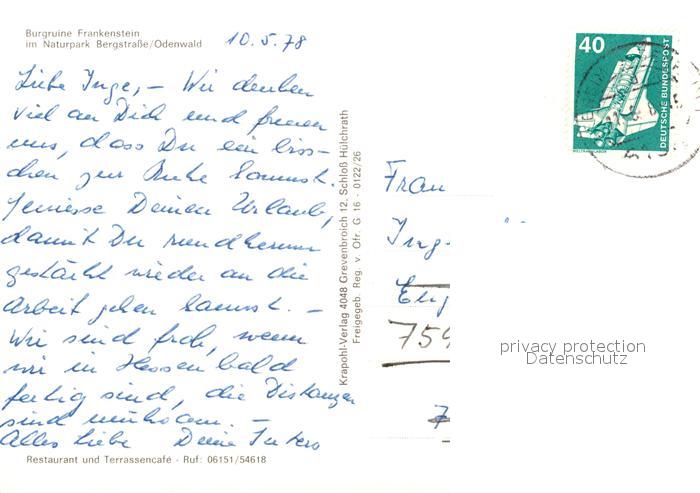 Burgruine Frankenstein
im Naturpark Bergstraße/Odenwald
10.5.78
Liebe Inge, – Wir denken
viel an Dich und freuen
uns, dass Du ein biss-
chen zur Ruhe kommst.
Geniesse Deinen Urlaub,
damit Du rundherum
gestärkt wieder an die
Arbeit gehen kannst. –
Wir sind froh, wenn
wir in Hessen bald
fertig sind, die Distanzen
sind mühsam. –
Alles Liebe Deine
Restaurant und Terrassencafé - Ruf: 06151/54618
Krapohl-Verlag 4048 Grevenbroich 12, Schloß Hülchrath
Freigegeb. Reg. v. Ofr. G 16 - 0122/26
40
DEUTSCHE BUNDESPOST
WELTRAUMLABOR
Frau
Ing
759
7
privacy protection
Datenschutz